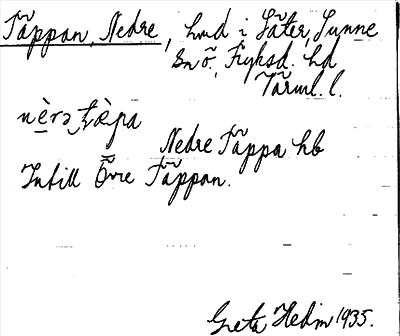 Täppan, Nedre, hmd i Säter, Sunne
sn ö., Fryksd. hd
Värml. l.
nèrə tæ̀pa
Nedre Täppa hb
Intill Övre Täppan.
Greta Hedin 1935.